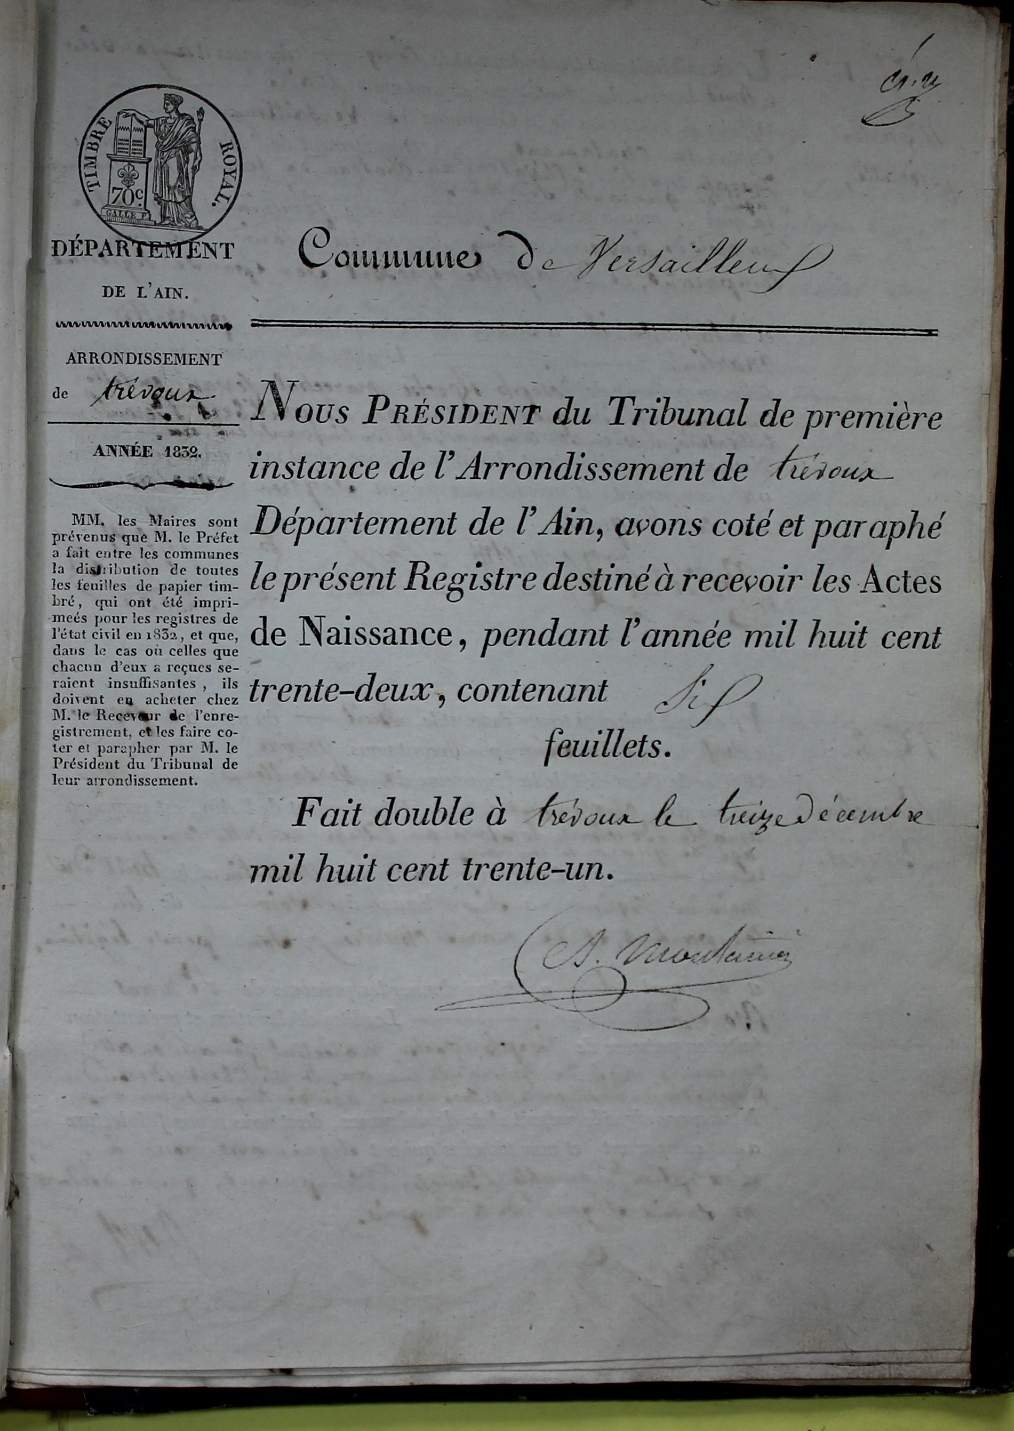 TIMBRE ROYAL.
70c.
GALLE F.
DÉPARTEMENT
DE L'AIN.
Commune De Versailleux
ARRONDISSEMENT
de trévoux
ANNÉE 1832.
MM. les Maires sont
prévenus que M. le Préfet
a fait entre les communes
la distribution de toutes
les feuilles de papier tim-
bré, qui ont été impri-
meés pour les registres de
l'état civil en 1832, et que,
dans le cas où celles que
chacun d'eux a reçues se-
raient insuffisantes, ils
doivent en acheter chez
M. le Receveur de l'enre-
gistrement, et les faire co-
ter et parapher par M. le
Président du Tribunal de
leur arrondissement.
NOUS PRÉSIDENT du Tribunal de première
instance de l'Arrondissement de trévoux
Département de l'Ain, avons coté et paraphé
le présent Registre destiné à recevoir les Actes
de Naissance, pendant l'année mil huit cent
trente-deux, contenant Six
feuillets.
Fait double à trévoux le treize Décembre
mil huit cent trente-un.